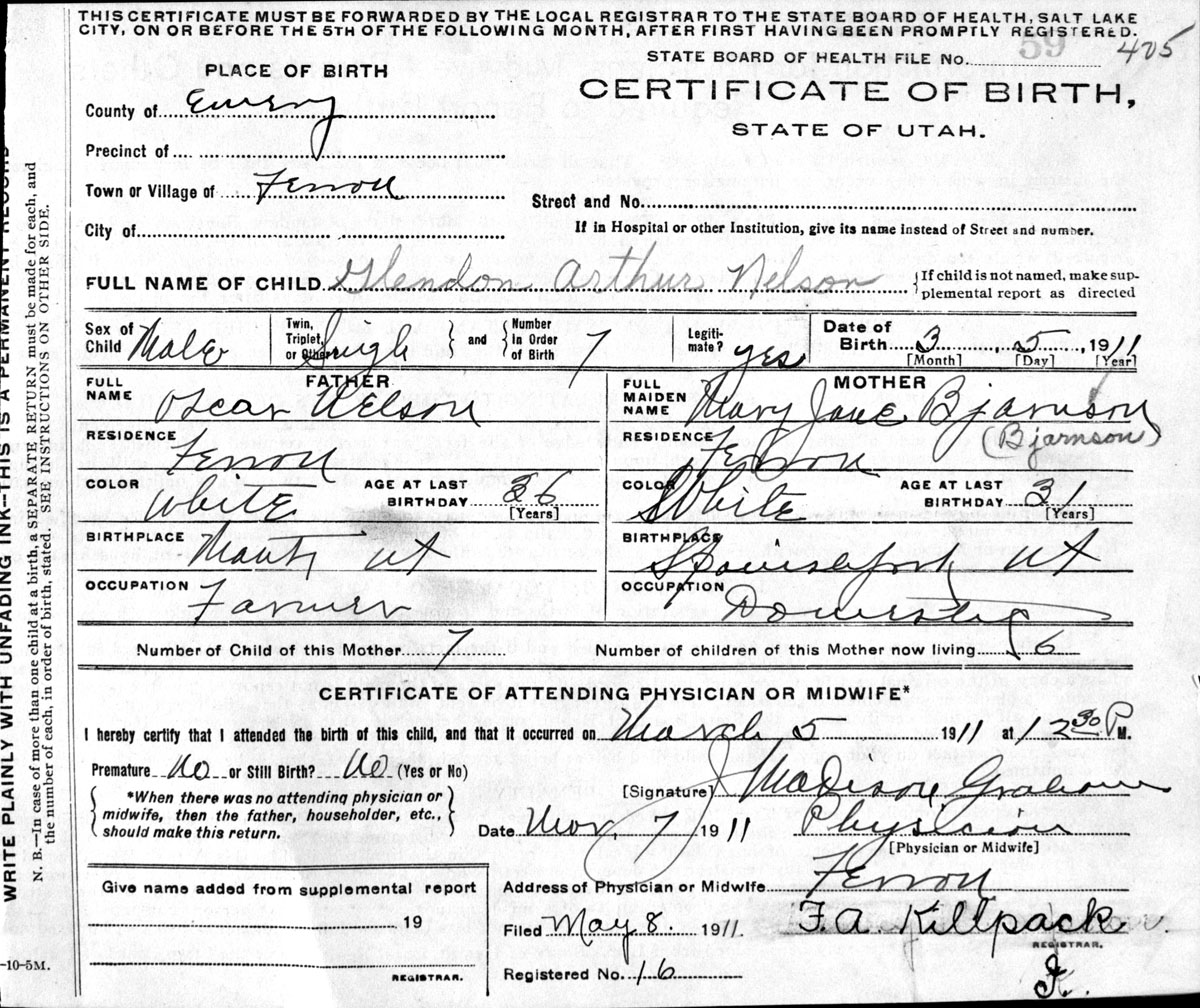 THIS CERTIFICATE MUST BE FORWARDED BY THE LOCAL REGISTRAR TO THE STATE BOARD OF HEALTH, SALT LAKE
CITY, ON OR BEFORE THE 5TH OF THE FOLLOWING MONTH, AFTER FIRST HAVING BEEN PROMPTLY REGISTERED.
59
STATE BOARD OF HEALTH FILE No. 405
PLACE OF BIRTH
CERTIFICATE OF BIRTH,
STATE OF UTAH.
County of Emery
Precinct of
Town or Village of Ferron
Street and No.
City of
If in Hospital or other Institution, give its name instead of Street and number.
FULL NAME OF CHILD Glendon Arthur Nelson {If child is not named, make sup-
plemental report as directed
Sex of Child Male Twin, Triplet, or Other Single and Number In Order of Birth 7 Legiti-mate? yes Date of Birth 3 5, 1911
[Month] [Day] [Year]
FATHER MOTHER
FULL NAME Oscar Nelson FULL MAIDEN NAME Mary Jane Bjarnson
(Bjarnson)
RESIDENCE Ferron RESIDENCE Ferron
COLOR White AGE AT LAST BIRTHDAY 36 [Years] COLOR White AGE AT LAST BIRTHDAY 31 [Years]
BIRTHPLACE Manti Ut BIRTHPLACE Spanishfork Ut
OCCUPATION Farmer OCCUPATION Domestic
Number of Child of this Mother 7 Number of children of this Mother now living 6
CERTIFICATE OF ATTENDING PHYSICIAN OR MIDWIFE*
I hereby certify that I attended the birth of this child, and that it occurred on March 5 1911 at 12 30 P M.
Premature No or Still Birth? No (Yes or No)
[Signature] J Madison Graham
*When there was no attending physician or
midwife, then the father, householder, etc.,
should make this return.
Date 7 1911 Physician
[Physician or Midwife]
Give name added from supplemental report
19
REGISTRAR.
Address of Physician or Midwife Ferron
Filed May 8. 1911. F. A. Killpack
REGISTRAR.
Registered No. 16
WRITE PLAINLY WITH UNFADING INK--THIS IS A PERMANENT RECORD
N. B.—In case of more than one child at a birth, a SEPARATE RETURN must be made for each, and
the number of each, in order of birth, stated. SEE INSTRUCTION ON OTHER SIDE.
-10-5M.